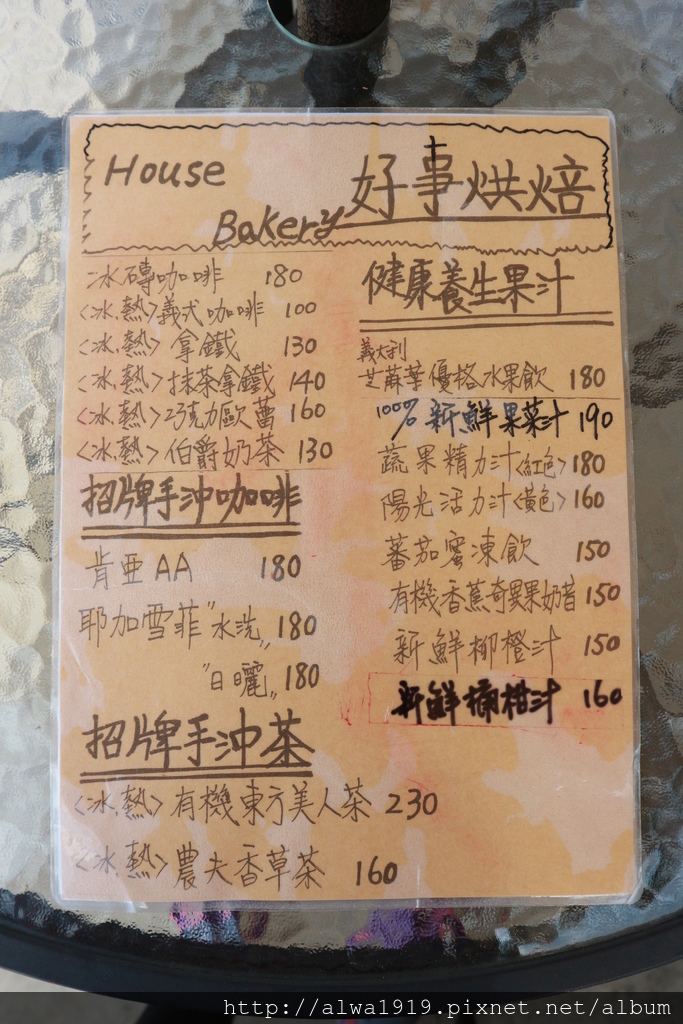 House
Bakery
好事烘焙
冰磚咖啡 180
<冰.熱>義式咖啡 100
<冰.熱>拿鐵 130
<冰.熱>抹茶拿鐵 140
<冰.熱>巧克力歐蕾 160
<冰.熱>伯爵奶茶 130
招牌手沖咖啡
肯亞AA 180
耶加雪菲"水洗" 180
"日曬" 180
招牌手沖茶
<冰.熱>有機東方美人茶 230
<冰.熱>農夫香草茶 160
健康養生果汁
義大利
芝蔴葉優格水果飲 180
100% 新鮮果菜汁 190
蔬果精力汁<紅色> 180
陽光活力汁<黃色> 160
蕃茄蜜凍飲 150
有機香蕉奇異果奶昔 150
新鮮柳橙汁 150
新鮮桶柑汁 160
http://alwa1919.pixnet.net/album